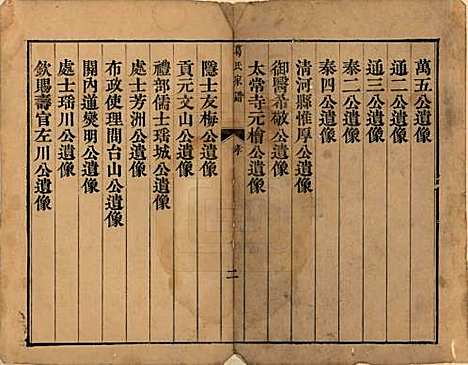 萬五公遺像
通二公遺像
通三公遺像
泰二公遺像
泰四公遺像
清河縣惟厚公遺像
御醫希敬公遺像
太常寺元檜公遺像
葛氏家譜
二
隱士友梅公遺像
貢元文山公遺像
禮部儒士瑤城公遺像
處士芳洲公遺像
布政使理間台山公遺像
關內道爕明公遺像
處士瑤川公遺像
欽賜壽官左川公遺像